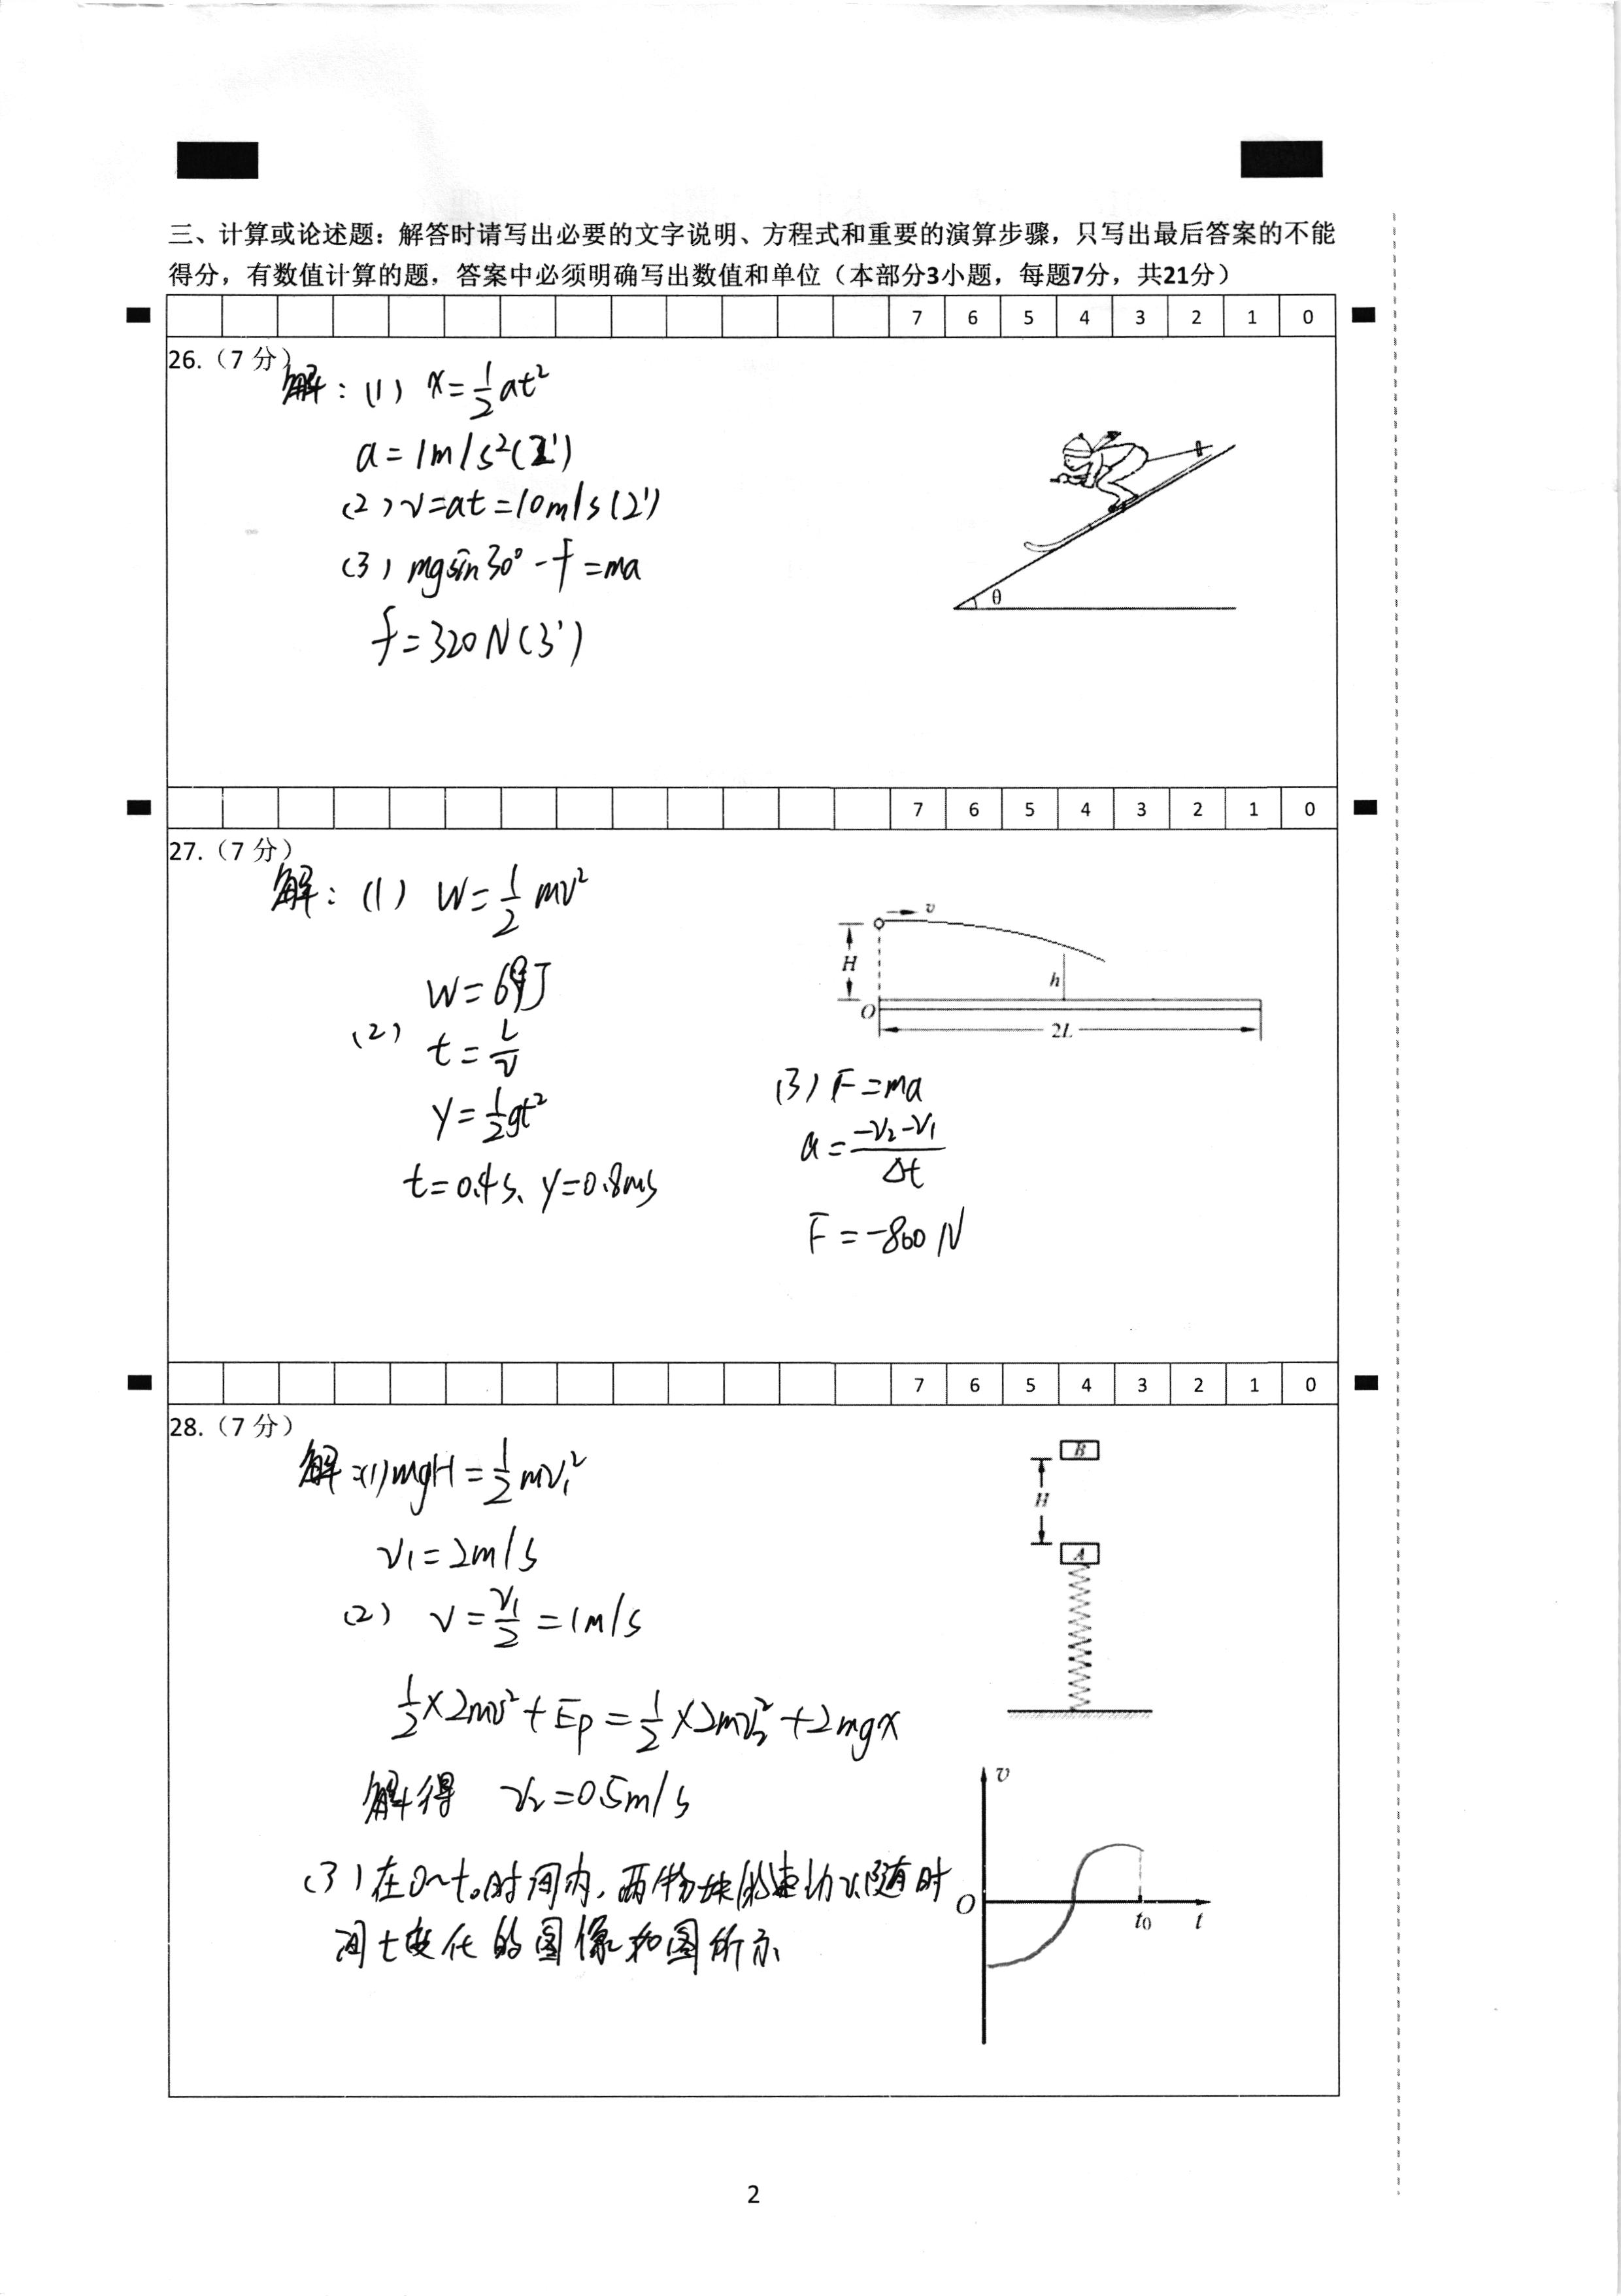 三、计算或论述题：解答时请写出必要的文字说明、方程式和重要的演算步骤，只写出最后答案的不能
得分，有数值计算的题，答案中必须明确写出数值和单位（本部分3小题，每题7分，共21分）
7 6 5 4 3 2 1 0
26.（7 分）
解：(1) x=1/2at²
a=1m/s²(2')
(2) v=at=10m/s(2')
(3) mgsin30°-f=ma
f=320N(3')
θ
7 6 5 4 3 2 1 0
27.（7 分）
解：(1) W=1/2mv²
W=J
(2) t=L/v
y=1/2gt²
t=0.4s、y=0.8m
v
H
h
O
2L
(3) F=ma
a=(-v₂-v₁)/Δt
F=-800N
7 6 5 4 3 2 1 0
28.（7 分）
解：(1)mgH=1/2mv₁²
v₁=2m/s
(2) v=v₁/2=1m/s
1/2×2mv²+Ep=1/2×2mv₂²+2mgx
解得 v₂=0.5m/s
(3)在0~t₀时间内，两物块的速v随时
间t变化的图像如图所示
B
H
A
v
O
t₀
t
2